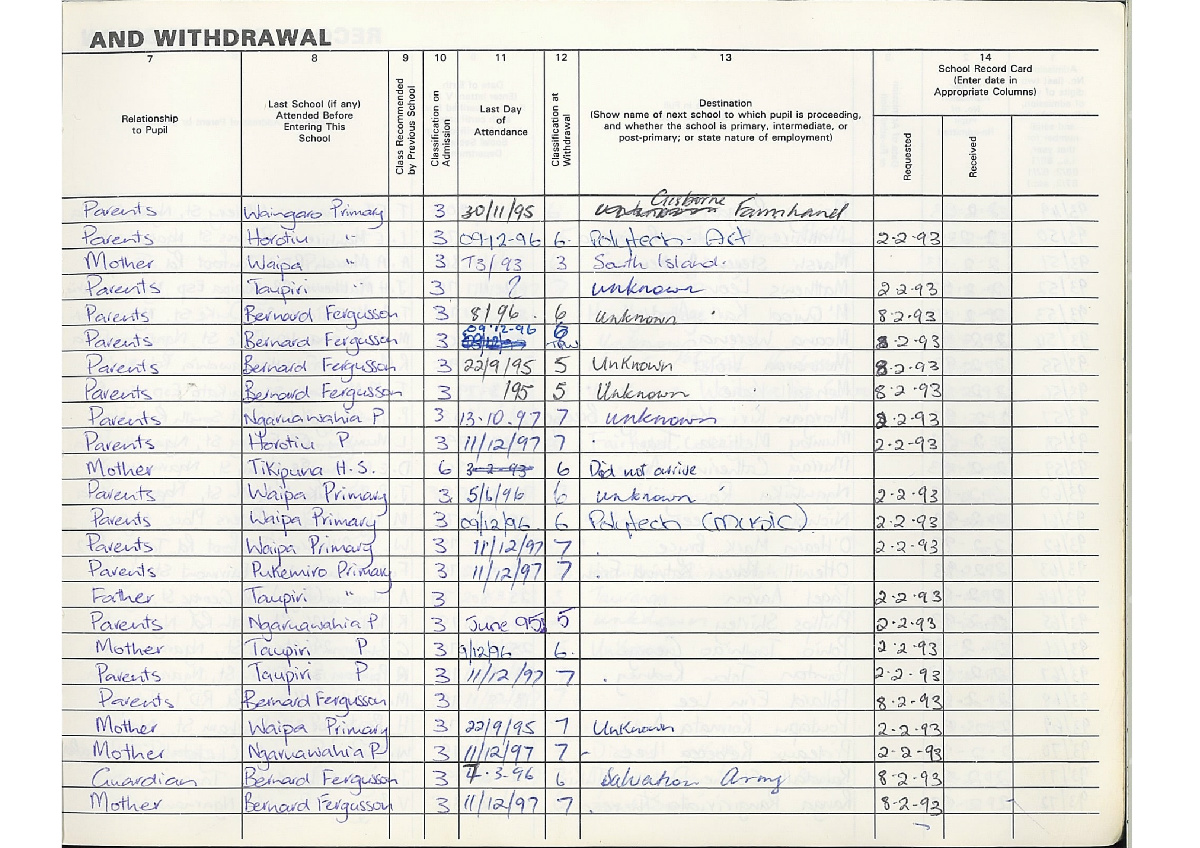 AND WITHDRAWAL
7 8 9 10 11 12 13 14
Relationship to Pupil
Last School (if any) Attended Before Entering This School
Class Recommended by Previous School
Classification on Admission
Last Day of Attendance
Classification at Withdrawal
Destination
(Show name of next school to which pupil is proceeding, and whether the school is primary, intermediate, or post-primary; or state nature of employment)
School Record Card (Enter date in Appropriate Columns)
Requested
Received
Parents Waingaro Primary 3 30/11/95 Gisborne Farmhand
Parents Horotiu " 3 09-12-96 6. Polytech - Art 2-2-93
Mother Waipa " 3 T3/93 3 South Island.
Parents Taupiri " 3 ? unknown 2-2-93
Parents Bernard Fergusson 3 8/96 . 6 unknown 8-2-93
Parents Bernard Fergusson 3 09-12-96 6 8-2-93
Parents Bernard Fergusson 3 22/9/95 5 UnKnown 8-2-93
Parents Bernard Fergusson 3 /95 5 Unknown 8-2-93
Parents Ngaruawahia P 3 13-10.97 7 unknown 2-2-93
Parents Horotiu P 3 11/12/97 7 2-2-93
Mother TiKipuna H.S. 6 3-2-93 6 Did not arrive
Parents Waipa Primary 3 5/6/96 6 unknown 2-2-93
Parents Waipa Primary 3 09/12/96 6 Polytech (Music) 2-2-93
Parents Waipa Primary 3 11/12/97 7 2-2-93
Parents Pukemiro Primary 3 11/12/97 7
Father Taupiri " 3 2-2-93
Parents Ngaruawahia P 3 June 95 5 2-2-93
Mother Taupiri P 3 9/12/96 6. 2-2-93
Parents Taupiri P 3 11/12/97 7 2-2-93
Parents Bernard Fergusson 3 8-2-93
Mother Waipa Primary 3 22/9/95 7 UnKnown 2-2-93
Mother Ngaruawahia P 3 11/12/97 7 - 2-2-93
Guardian Bernard Fergusson 3 7-3-96 6 Salvation Army 8-2-93
Mother Bernard Fergusson 3 11/12/97 7 8-2-93